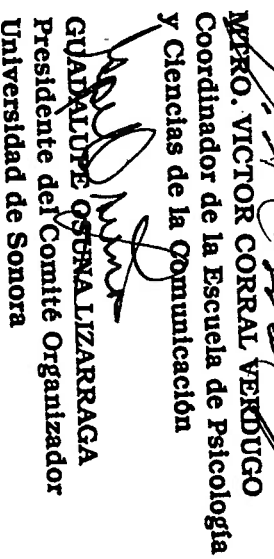 MTRO. VICTOR CORRAL VERDUGO
Coordinador de la Escuela de Psicología
y Ciencias de la Comunicación
GUADALUPE OSUNA LIZARRAGA
Presidente del Comité Organizador
Universidad de Sonora